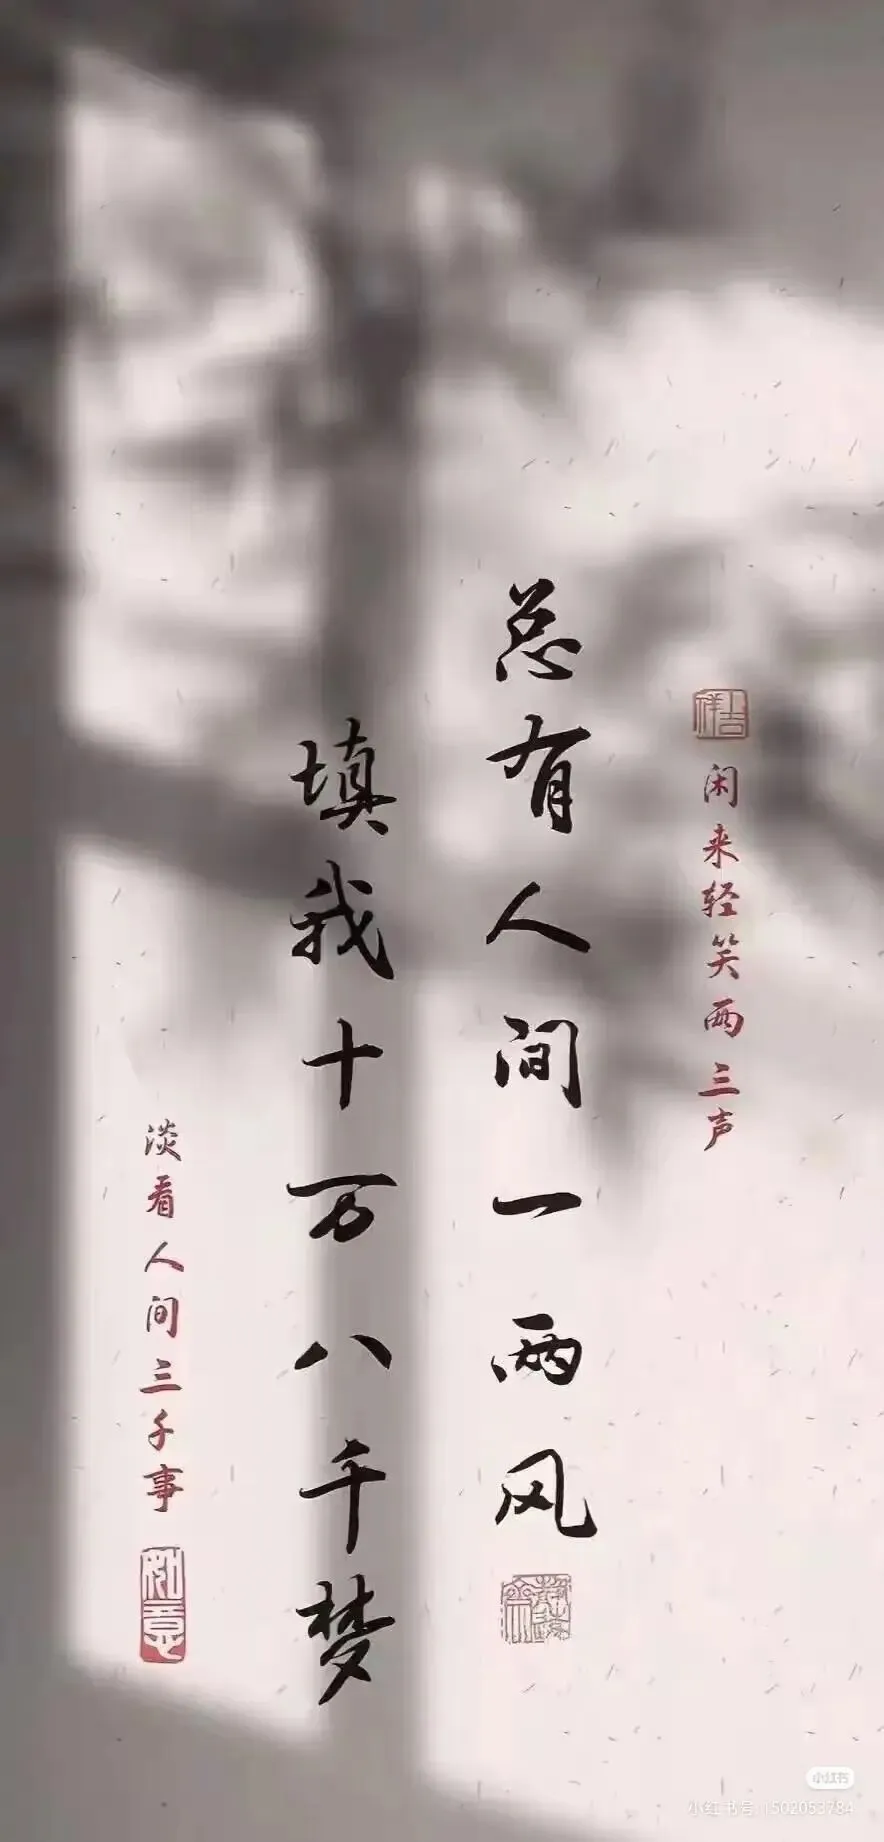 吉祥
闲来轻笑两三声
总有人间一两风
填我十万八千梦
淡看人间三千事
如意
小红书
小红书号:1502053784